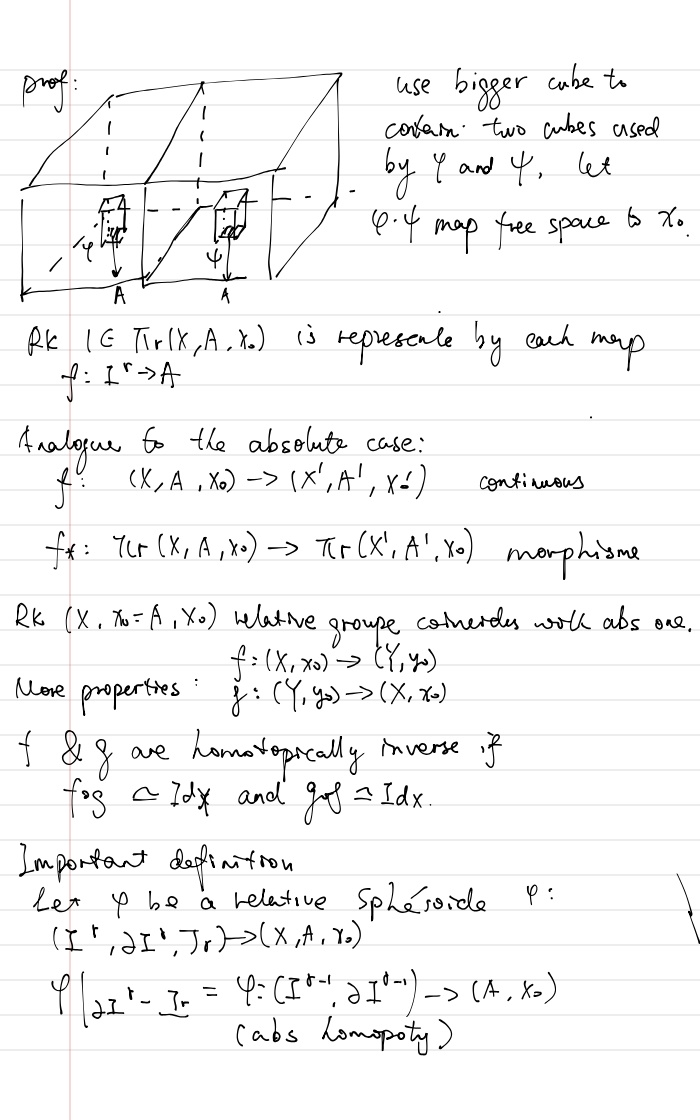 prof:
use bigger cube to
contain two cubes used
by φ and ψ, let
φ·ψ map free space to x₀.
φ
ψ
A
A
RK 1 ∈ πr(X, A, x₀) is represente by each map
f: Iʳ → A
Analogue to the absolute case:
f: (X, A, x₀) -> (X', A', x₀') continuous
f*: πr(X, A, x₀) -> πr(X', A', x₀) morphisme
RK (X, x₀ = A, x₀) relative groupe coincides with abs one.
f: (X, x₀) -> (Y, y₀)
More properties: g: (Y, y₀) -> (X, x₀)
f & g are homotopically inverse if
f∘g ≃ Idy and g∘f ≃ Idx.
Important definition
Let φ be a relative sphéroide φ:
(Iʳ, ∂Iʳ, Jr) -> (X, A, x₀)
φ|∂Iʳ - Jr = φ: (Iʳ⁻¹, ∂Iʳ⁻¹) -> (A, x₀)
(abs homopoty)